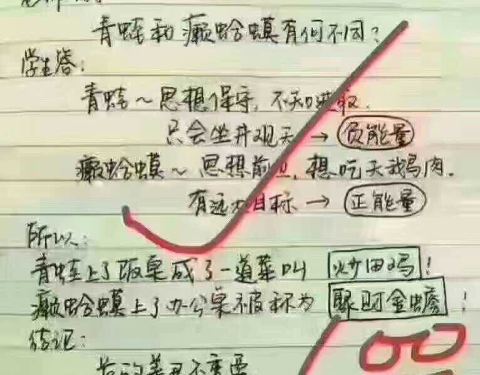 青蛙和癞蛤蟆有何不同?
学生答:
青蛙~思想保守,不知进取.
只会坐井观天→负能量
癞蛤蟆~思想前卫,想吃天鹅肉.
有远大目标→正能量
所以:
青蛙上了饭桌成了一道菜叫 炒田鸡!
癞蛤蟆上了办公桌被称为 聚财金蟾!
结记:
长的美丑不重要
100